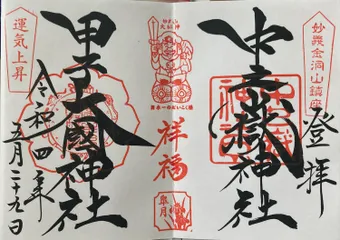 妙義金洞山鎮座
登拝
中之嶽神社
甲子大國神社
祥福
皐月
運気上昇
令和四年
五月二十九日